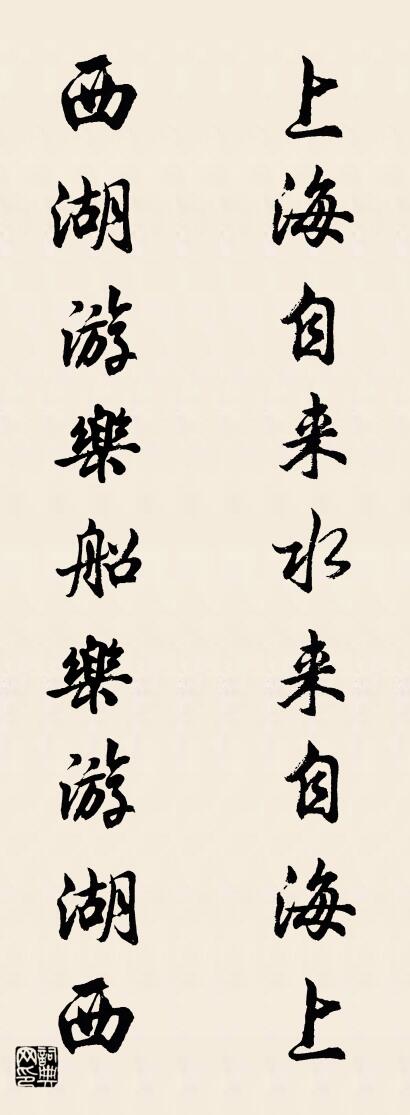 上海自来水来自海上
西湖游樂船樂游湖西
詞典网印